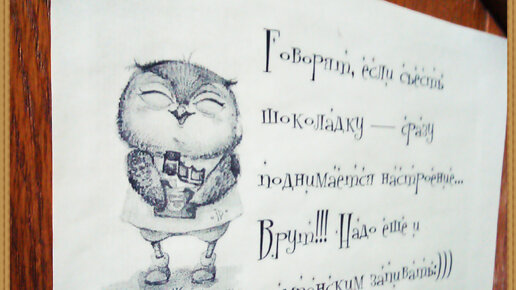 Говорят, если съесть
шоколадку — сразу
поднимается настроение...
Врут!!! Надо ещё и
запивать:)))